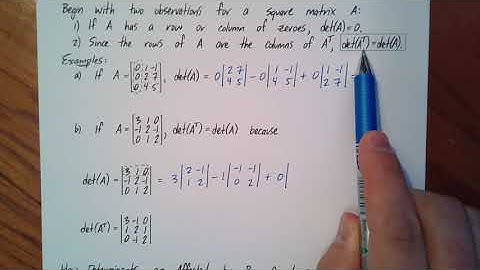 Begin with two observations for a square matrix A:
1) If A has a row or column of zeroes, det(A)=0.
2) Since the rows of A are the columns of Aᵀ, det(Aᵀ)=det(A).
Examples:
a) If A = |0 1 -1; 0 2 7; 0 4 5|, det(A) = 0|2 7; 4 5| - 0|1 -1; 4 5| + 0|1 -1; 2 7| =
b) If A = |3 1 0; -1 2 -1; 0 1 2|, det(Aᵀ) = det(A) because
det(A) = |3 1 0; -1 2 -1; 0 1 2| = 3|2 -1; 1 2| - 1|-1 -1; 0 2| + 0|
det(Aᵀ) = |3 -1 0; 1 2 1; 0 -1 2|
How Determinants are Affected by